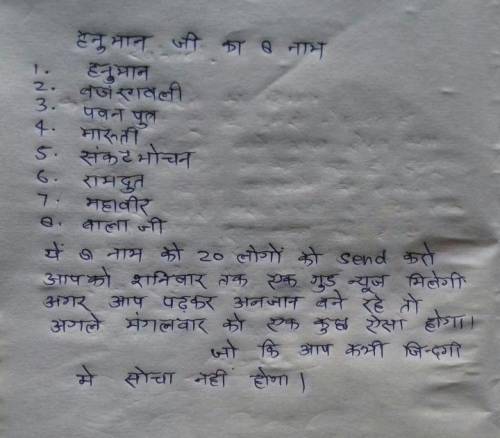 हनुमान जी का 8 नाम
1. हनुमान
2. वजरंगवली
3. पवन पुत्र
4. मारुती
5. संकटमोचन
6. रामदुत
7. महावीर
8. वाला जी
यें 8 नाम को 20 लोगों को send कते
आपको शनिवार तक एक गुड न्यूज मिलेगी
अगर आप पढ़कर अनजान बने रहे तो
अगले मंगलवार को एक कुछ ऐसा होगा।
जो कि आप कभी जिन्दगी
मे सोचा नहीं होगा।